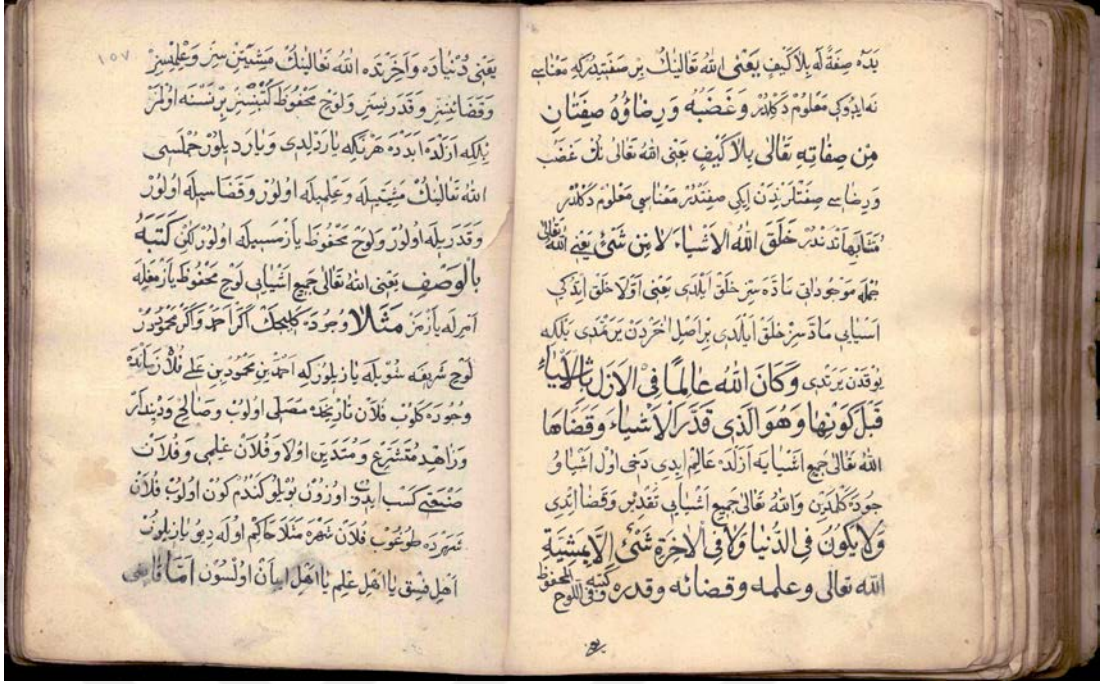 يده صفة له بلا كيف يعنى الله تعالينك بر صفتيدركه معناسى
نه ايدوكى معلوم دكلدر وغضبه ورضاؤه صفتان
من صفاته تعالى بلا كيف يعنى الله تعالى نك غضب
ورضاسى صفتلرندن ايكى صفتدر معناسى معلوم دكلدر
متشابهاتدندر خلق الله الاشياء لا من شئ يعنى الله تعالى
جمله موجوداتى ماده سز خلق ايلدى يعنى اولا خلق ايتدكى
اشيايى ماده سز خلق ايلدى بر اصل اخردن يرتمدى بلكه
يوقدن يرتدى وكان الله عالما فى الازل بالاشياء
قبل كونها وهو الذى قدر الاشياء وقضاها
الله تعالى جميع اشيايه ازلده عالم ايدى دخى اول اشيا و
جوده كلمدين والله تعالى جميع اشيايى تقدير وقضا اتدى
ولا يكون فى الدنيا ولا فى الاخرة شئ الا بمشية
الله تعالى وعلمه وقضائه وقدره وكتبه فى اللوح المحفوظ
يعنى
١٥٧
يعنى دنياده واخرتده الله تعالينك مشيتنسز وعلمنسز
وقضاسنسز وقدرنسز ولوح محفوظ كتبنسز بر نسنه اولمز
بلكه ازلده ابدده هرنكه يارادلدى ويارديلور جمله سى
الله تعالينك مشيتيله وعلميله اولور وقضاسيله اولور
وقدريله اولور ولوح محفوظ يازمسيله اولور لكن كتبه
بالوصف يعنى الله تعالى جميع اشيايى لوح محفوظ يازمغله
امرله يازمز مثلا وجوده كلیجك اكر احمد واكر محموددر
لوح شريفه شويله يازيلوركه احمد بن محمود بن على فلان زمانده
وجوده كلوب فلان تاريخده مصلى اولوب وصالح وديندار
وزاهد متشرع ومتدين اولا وفلان علمى وفلان
صنعتى كسب ايدوب اوزون بويلو كندم كون اولوب فلان
شهرده طوغوب فلان شهره مثلا حاكم اوله ديو يازيلور
اهل فسق يا اهل علم يا اهل ايمان اولسون اما قاضى